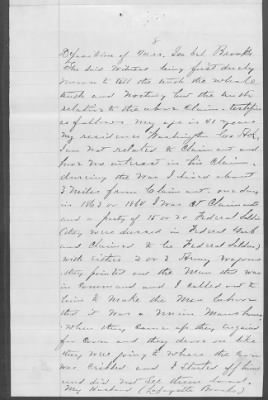 8
Deposition of Mrs. Isabel Brooks
The said Witness being first duly
sworn to tell the truth the whole
truth and nothing but the truth
relative to the above Claim, testifies
as follows my age is 41 years
my residence Washington Co
I am not related to Claimant and
have no interest in his Claim,
during the War I lived about
3 miles from Claimant. one day
in 1863 or 1864 I was at Claimants
and a party of 15 or 20 Federal Soldiers
(they were dressed in Federal
and Claimed to be Federal Soldiers)
with either 2 or 3 Army wagons
they pointed out the Man that was
in Command and I called out to
him to make the Men behave
that it was a Union Mans house
When they came up they inquired
for Corn and they drove on like
they were going to where the Corn
was Cribbed and I started off home
and did not See them load.
My Husband (Lafayette Brooks)